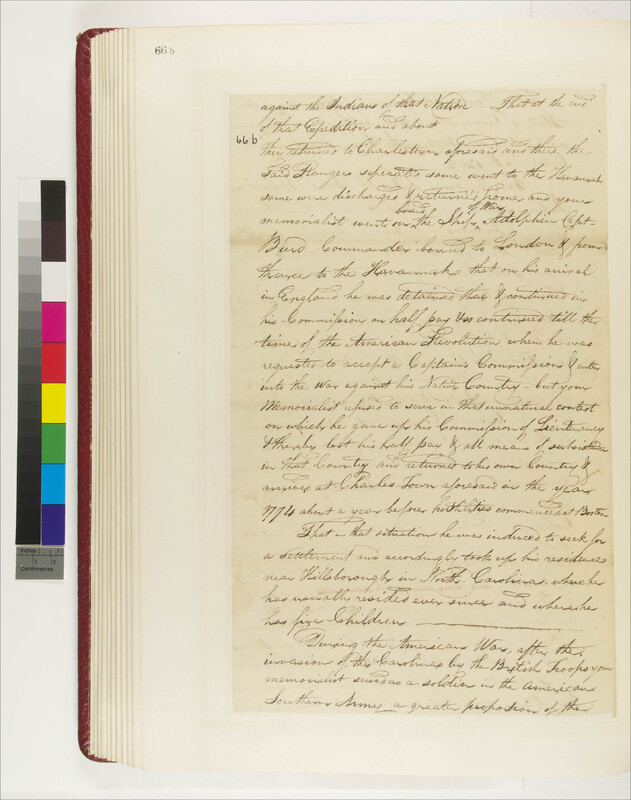 66 b
against the Indians of that Nation That at the end
66 b
of that Expedition and about
they returned to Charlestown aforesaid and there the
Said Rangers seperated some went to the Havannah
some were discharged & returned home, and your
memorialist went on board the Ship of War, Adolphin Capt.
Bird Commander bound to London & from
thence to the Havannah that on his arival
in England he was detained there & continued in
his Commission on half pay & so continued till the
time of the American Revolution when he was
requested to accept a Captains Commission & enter
into the War against his Native Country - but your
Memorialist refused to serve in that unnatural contest
on which he gave up his Commission of Lieutenancy
& thereby lost his half pay & all means of subsistence
in that Country and returned to his own Country &
arrived at Charles Town aforesaid in the year
1774 about a year before hostilities commenced at Boston
That in that situation he was induced to seek for
a settlement and accordingly took up his residence
near Hillsborough in North Carolina. where he
has usually resided ever since and where he
has five Children
During the American War, after the
invasion of the Carolinas by the British Troops your
memorialist served as a soldier in the American
Southern Army a greater proportion of the
Inches 1
1 2
Centimetres